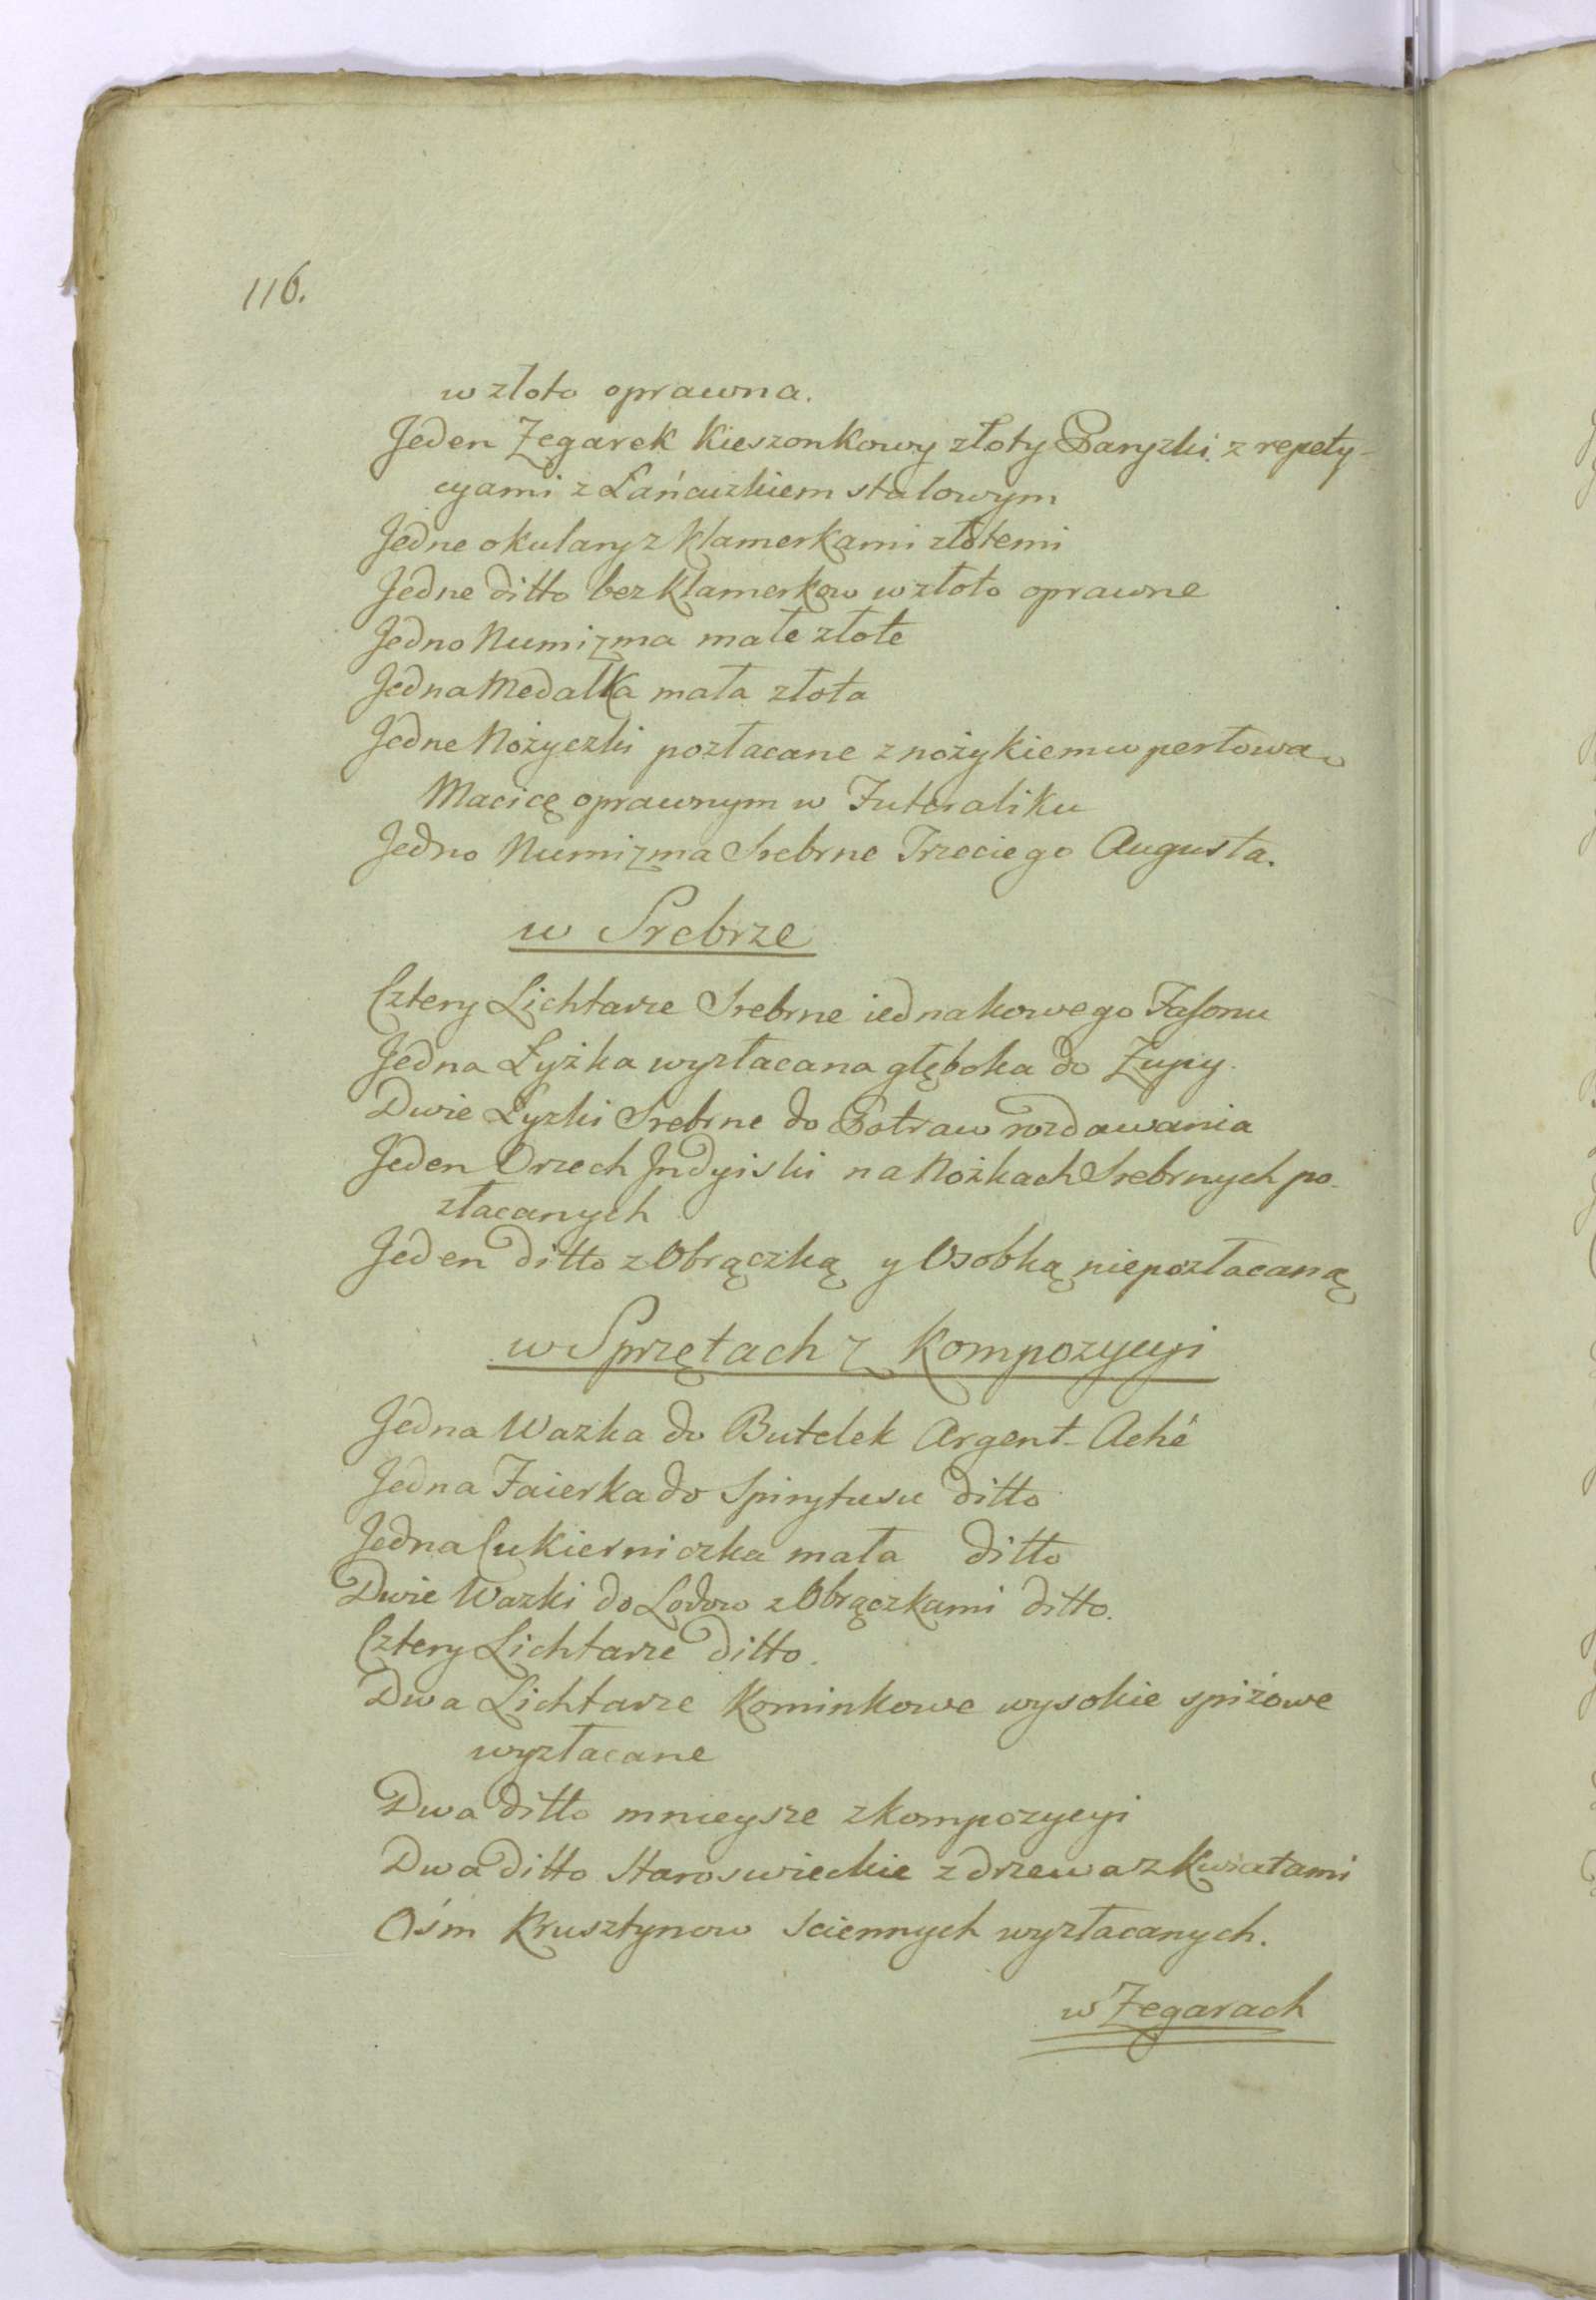 116.
w złoto oprawna.
Jeden Zegarek Kieszonkowy złoty Paryzki z repety-
cyami z Łańcuzkiem stalowym
Jedne okulary z Klamerkami złotemi
Jedne ditto bez Klamerkow w złoto oprawne
Jedno Numizma małe złote
Jedna Medalka mała złota
Jedne Nożyczki pozłacane z nożykiem w perłowa
Macicę oprawnym w Futeraliku
Jedno Numizma Srebrne Trzeciego Augusta.
w Srebrze
Cztery Lichtarze Srebrne iednakowego Fasonu
Jedna Łyżka wyzłacana głęboka do Zupy.
Dwie Łyzki Srebrne do Potraw rozdawania
Jeden Orzech Indyiski na Nóżkach Srebrnych po-
złacanych
Jeden ditto z Obrączką y Osobką niepozłacaną
w Sprzętach z Kompozycyi
Jedna Wazka do Butelek Argent-Aché
Jedna Faierka do Spirytusu ditto
Jedna Cukierniczka mała ditto
Dwie Wazki do Lodow z Obrączkami ditto.
Cztery Lichtarze ditto.
Dwa Lichtarze Kominkowe wysokie spiżowe
wyzłacane
Dwa ditto mnieysze z kompozycyi
Dwa ditto Staroswieckie z drzewa z Kwiatami
Ośm Krusztynow Sciennych wyzłacanych.
w Zegarach